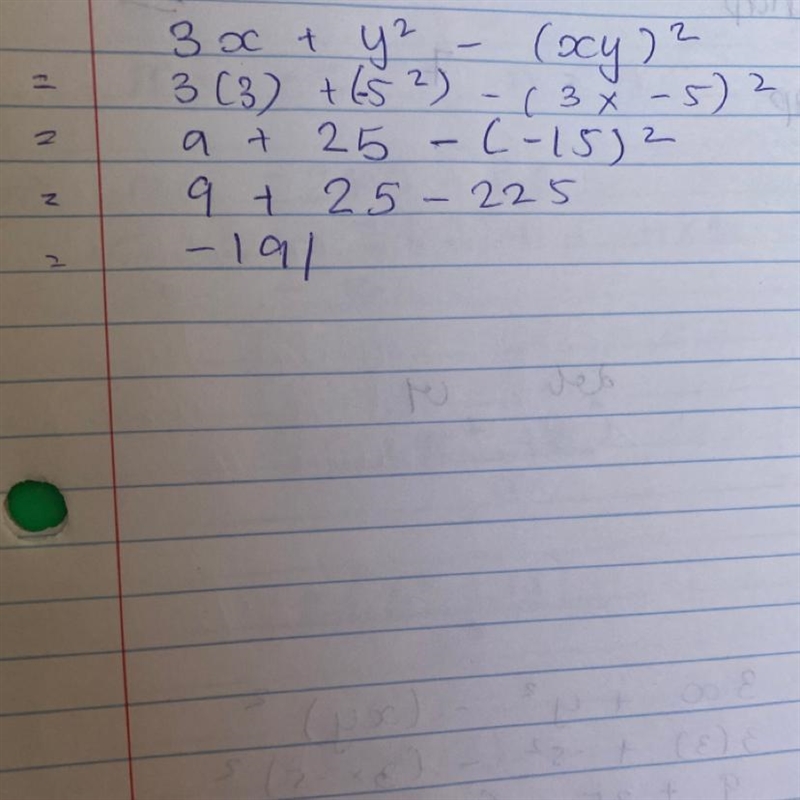 3x + y² - (xy)²
= 3(3) + (-5²) - (3 x -5)²
= 9 + 25 - (-15)²
= 9 + 25 - 225
= -191/